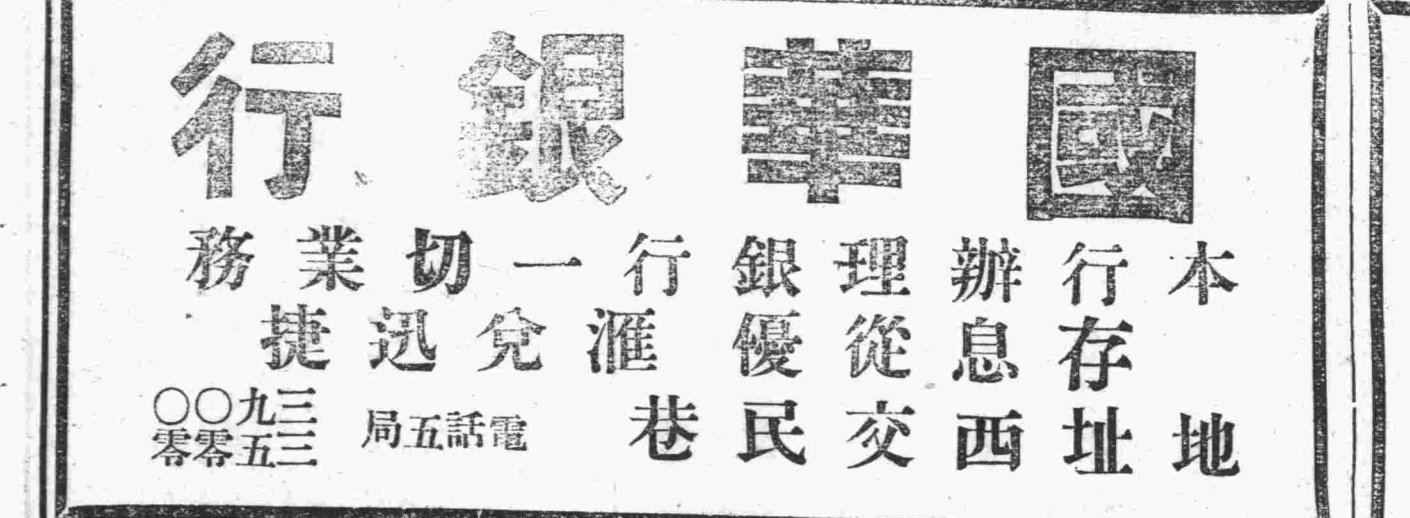 國華銀行
本行辦理銀行一切業務
存息從優滙兌迅捷
地址西交民巷
電話五局
三九〇〇
三五零零